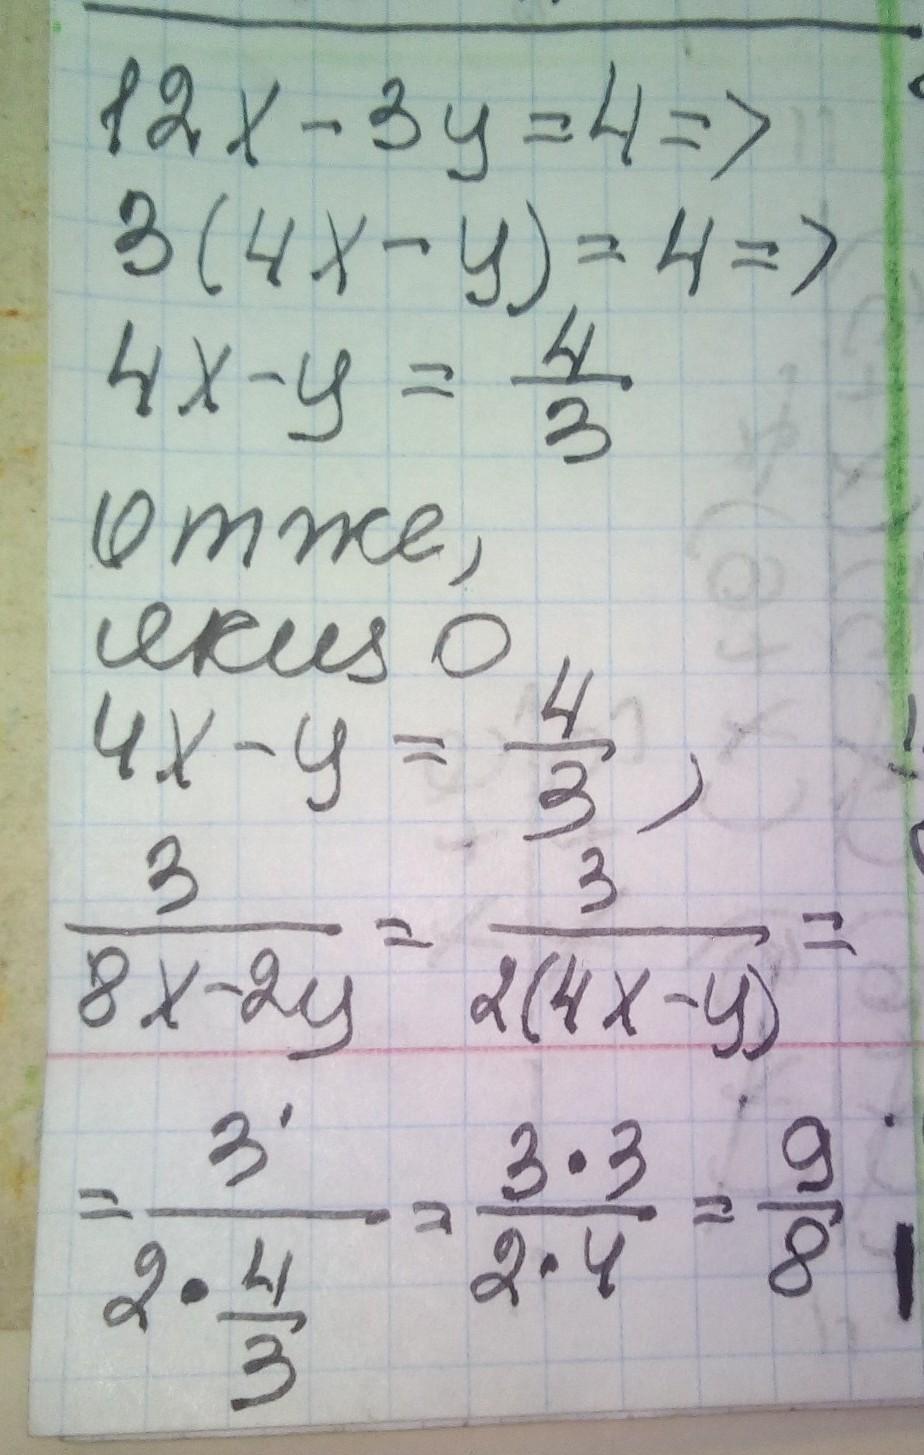 12x - 3y = 4 =>
3(4x - y) = 4 =>
4x - y = 4/3
Отже,
якщо
4x - y = 4/3,
3/(8x - 2y) = 3/(2(4x - y)) =
= 3/(2 · 4/3) = (3 · 3)/(2 · 4) = 9/8